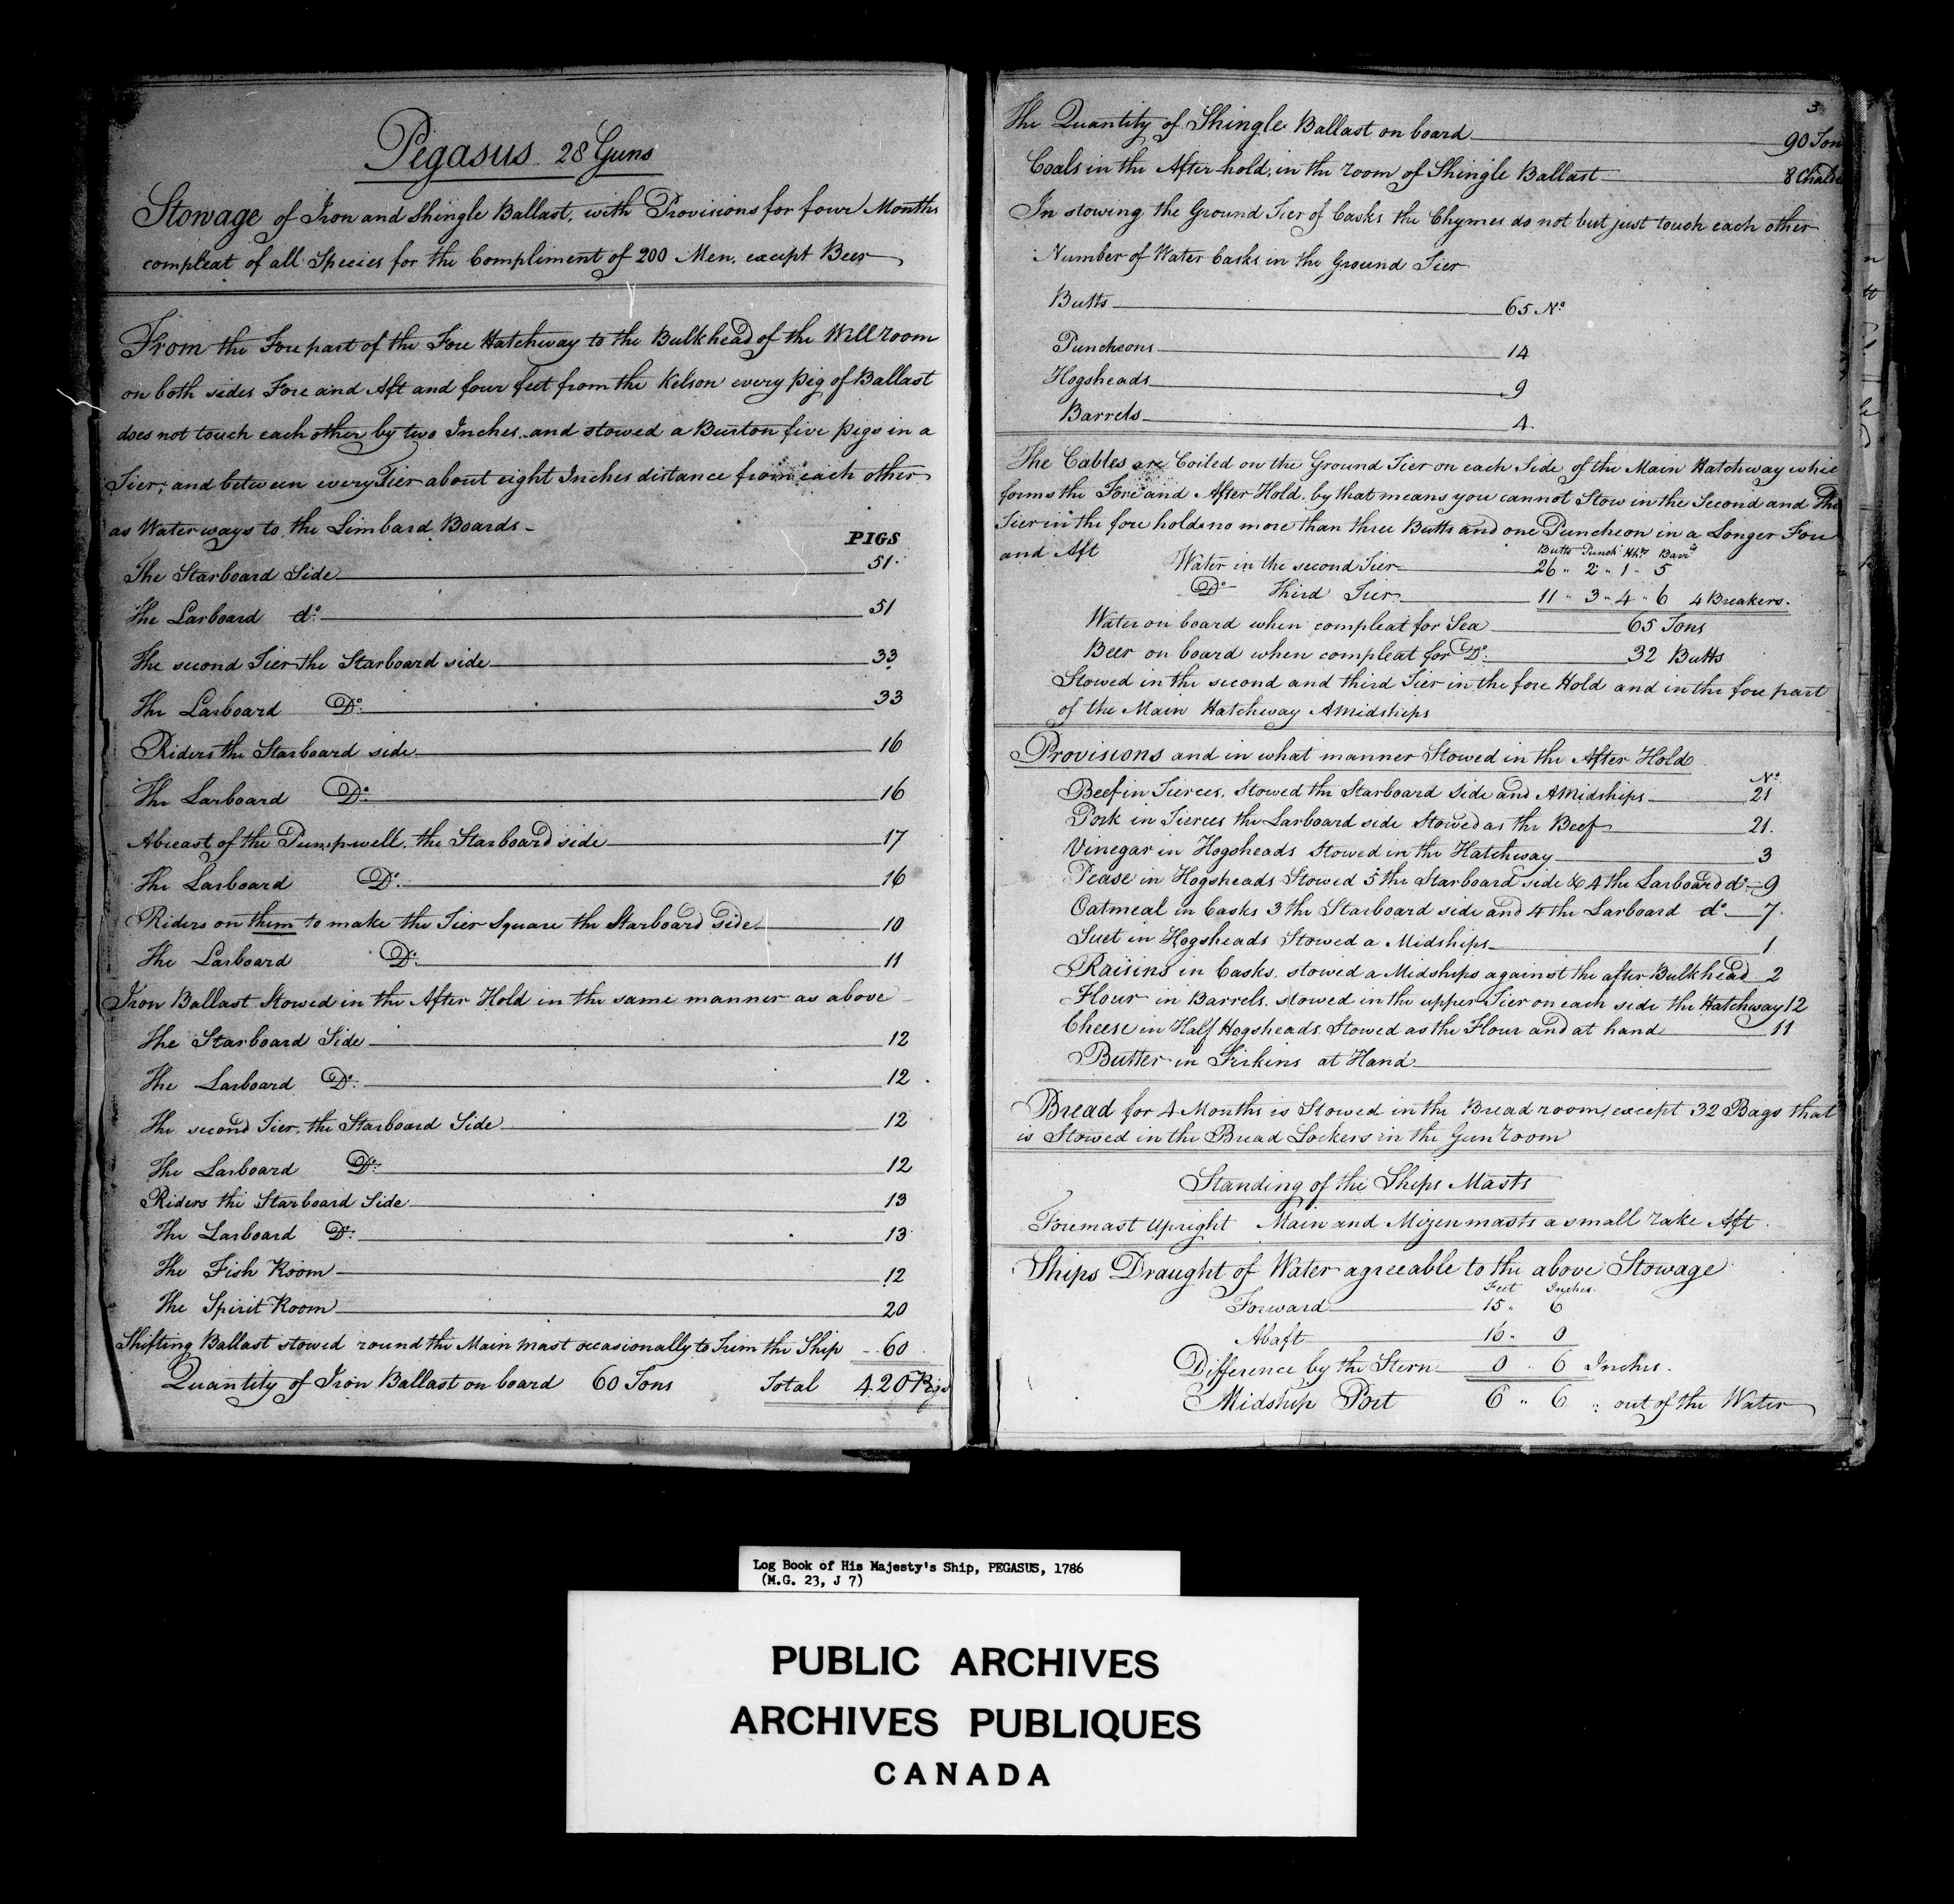 Pegasus 28 Guns
Stowage of Iron and Shingle Ballast, with Provisions for four Months
compleat of all Species for the Compliment of 200 Men, except Beer
From the Fore part of the Fore Hatchway to the Bulkhead of the Well room
on both sides Fore and Aft and four feet from the Kelson every Pig of Ballast
does not touch each other by two Inches, and stowed a Burton five Pigs in a
Tier; and between every Tier about eight Inches distance from each other
as Water ways to the Limbard Boards -
PIGS
The Starboard Side 51
The Larboard do. 51
The second Tier the Starboard side 33
The Larboard Do. 33
Riders the Starboard side 16
The Larboard Do. 16
Abreast of the Pump well, the Starboard side 17
The Larboard Do. 16
Riders on them to make the Tier Square the Starboard Side 10
The Larboard Do. 11
Iron Ballast Stowed in the After Hold in the same manner as above
The Starboard Side 12
The Larboard Do. 12
The second Tier, the Starboard Side 12
The Larboard Do. 12
Riders the Starboard Side 13
The Larboard Do. 13
The Fish Room 12
The Spirit Room 20
Shifting Ballast stowed round the Main mast occasionally to Trim the Ship 60
Quantity of Iron Ballast on board 60 Tons Total 420 Pigs
3
The Quantity of Shingle Ballast on board 90 Ton
Coals in the After hold, in the room of Shingle Ballast 8 Chald
In stowing the Ground Tier of Casks the Chymes do not but just touch each other
Number of Water Casks in the Ground Tier
Butts 65 No.
Puncheons 14
Hogsheads 9
Barrels 4.
The Cables are Coiled on the Ground Tier on each Side of the Main Hatchway whic
forms the Fore and After Hold. by that means you cannot Stow in the Second and Thi
Tier in the fore hold no more than three Butts and one Puncheon in a Longer Fore
and Aft
Butts Punch Hhds Barrs
Water in the second Tier 26 " 2 " 1 " 5
Do. Third Tier 11 " 3 " 4 " 6 4 Breakers.
Water on board when compleat for Sea 65 Tons
Beer on board when compleat for Do. 32 Butts
Stowed in the second and third Tier in the fore Hold and in the fore part
of the Main Hatchway AMidships
Provisions and in what manner Stowed in the After Hold
No.
Beef in Tierces, Stowed the Starboard Side and AMidships 21
Pork in Tierces the Larboard side Stowed as the Beef 21.
Vinegar in Hogsheads Stowed in the Hatchway 3
Pease in Hogsheads Stowed 5 the Starboard side & 4 the Larboard do. 9
Oatmeal in Casks 3 the Starboard side and 4 the Larboard do. 7.
Suet in Hogsheads Stowed a Midships 1
Raisins in Casks, stowed a Midships against the after Bulkhead 2
Flour in Barrels, stowed in the upper Tier on each side the Hatchway 12
Cheese in Half Hogsheads Stowed as the Flour and at hand 11
Butter in Firkins at Hand
Bread for 4 Months is Stowed in the Bread room, except 32 Bags that
is Stowed in the Bread Lockers in the Gun room
Standing of the Ships Masts
Foremast Upright Main and Mizen masts a small rake Aft.
Ships Draught of Water agreeable to the above Stowage
Feet Inches.
Forward 15 " 6
Abaft 16 " 0
Difference by the Stern 0 " 6 Inches.
Midship Port 6 " 6 " out of the Water
Log Book of His Majesty's Ship, PEGASUS, 1786
(M.G. 23, J 7)
PUBLIC ARCHIVES
ARCHIVES PUBLIQUES
CANADA